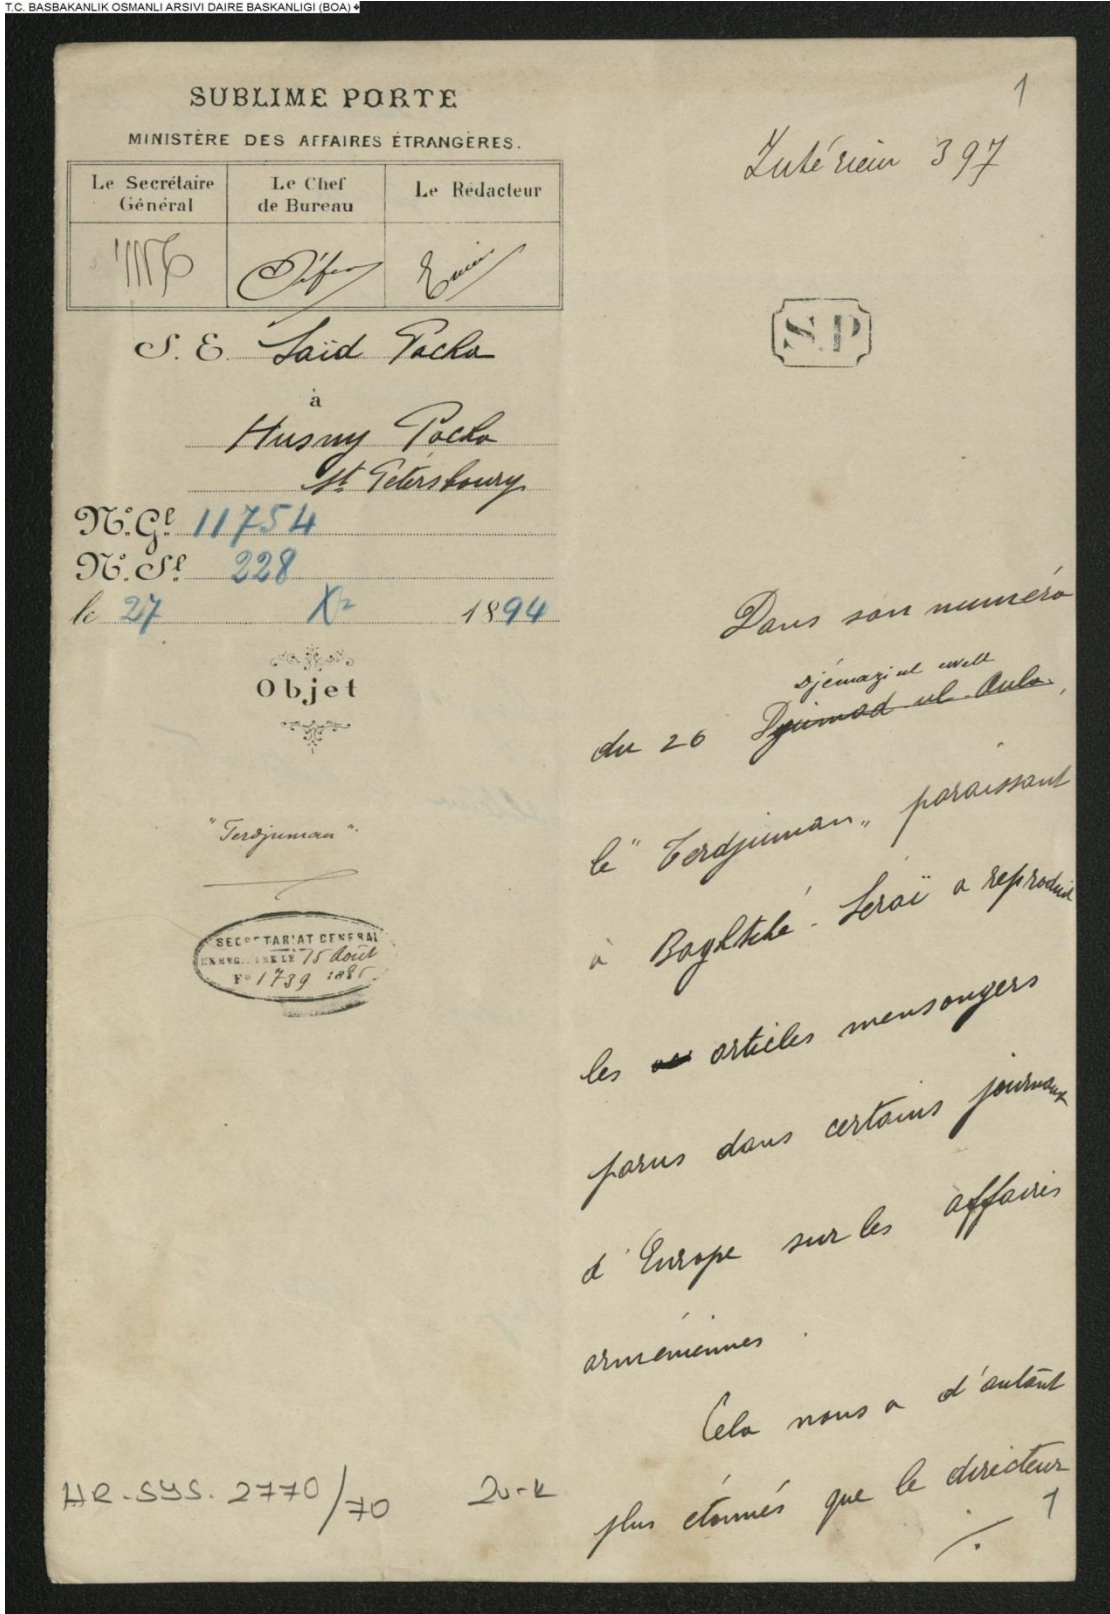 T.C. BASBAKANLIK OSMANLI ARSIVI DAIRE BASKANLIGI (BOA)
SUBLIME PORTE
MINISTÈRE DES AFFAIRES ÉTRANGÈRES.
Le Secrétaire Général
Le Chef de Bureau
Le Rédacteur
S. E. Saïd Pacha
à
Husny Pacha
St Pétersbourg
N.o G.l 11754
N.o S.l 228
le 27 Xre 1894
Objet
"Terdjuman".
SECRETARIAT GENERAL
ENREGISTRE LE 15 Août
F° 1739 188
HR-SYS. 2770/70
1
Intérieur 397
S.P
Dans son numéro
djémazi ul ewell
du 26 Djuimad ul-Aula,
le "Terdjuman„ paraissant
à Baghtché-Seraï a reproduit
les articles mensongers
parus dans certains journaux
d'Europe sur les affaires
arméniennes.
Cela nous a d'autant
plus étonnés que le directeur
./.
1